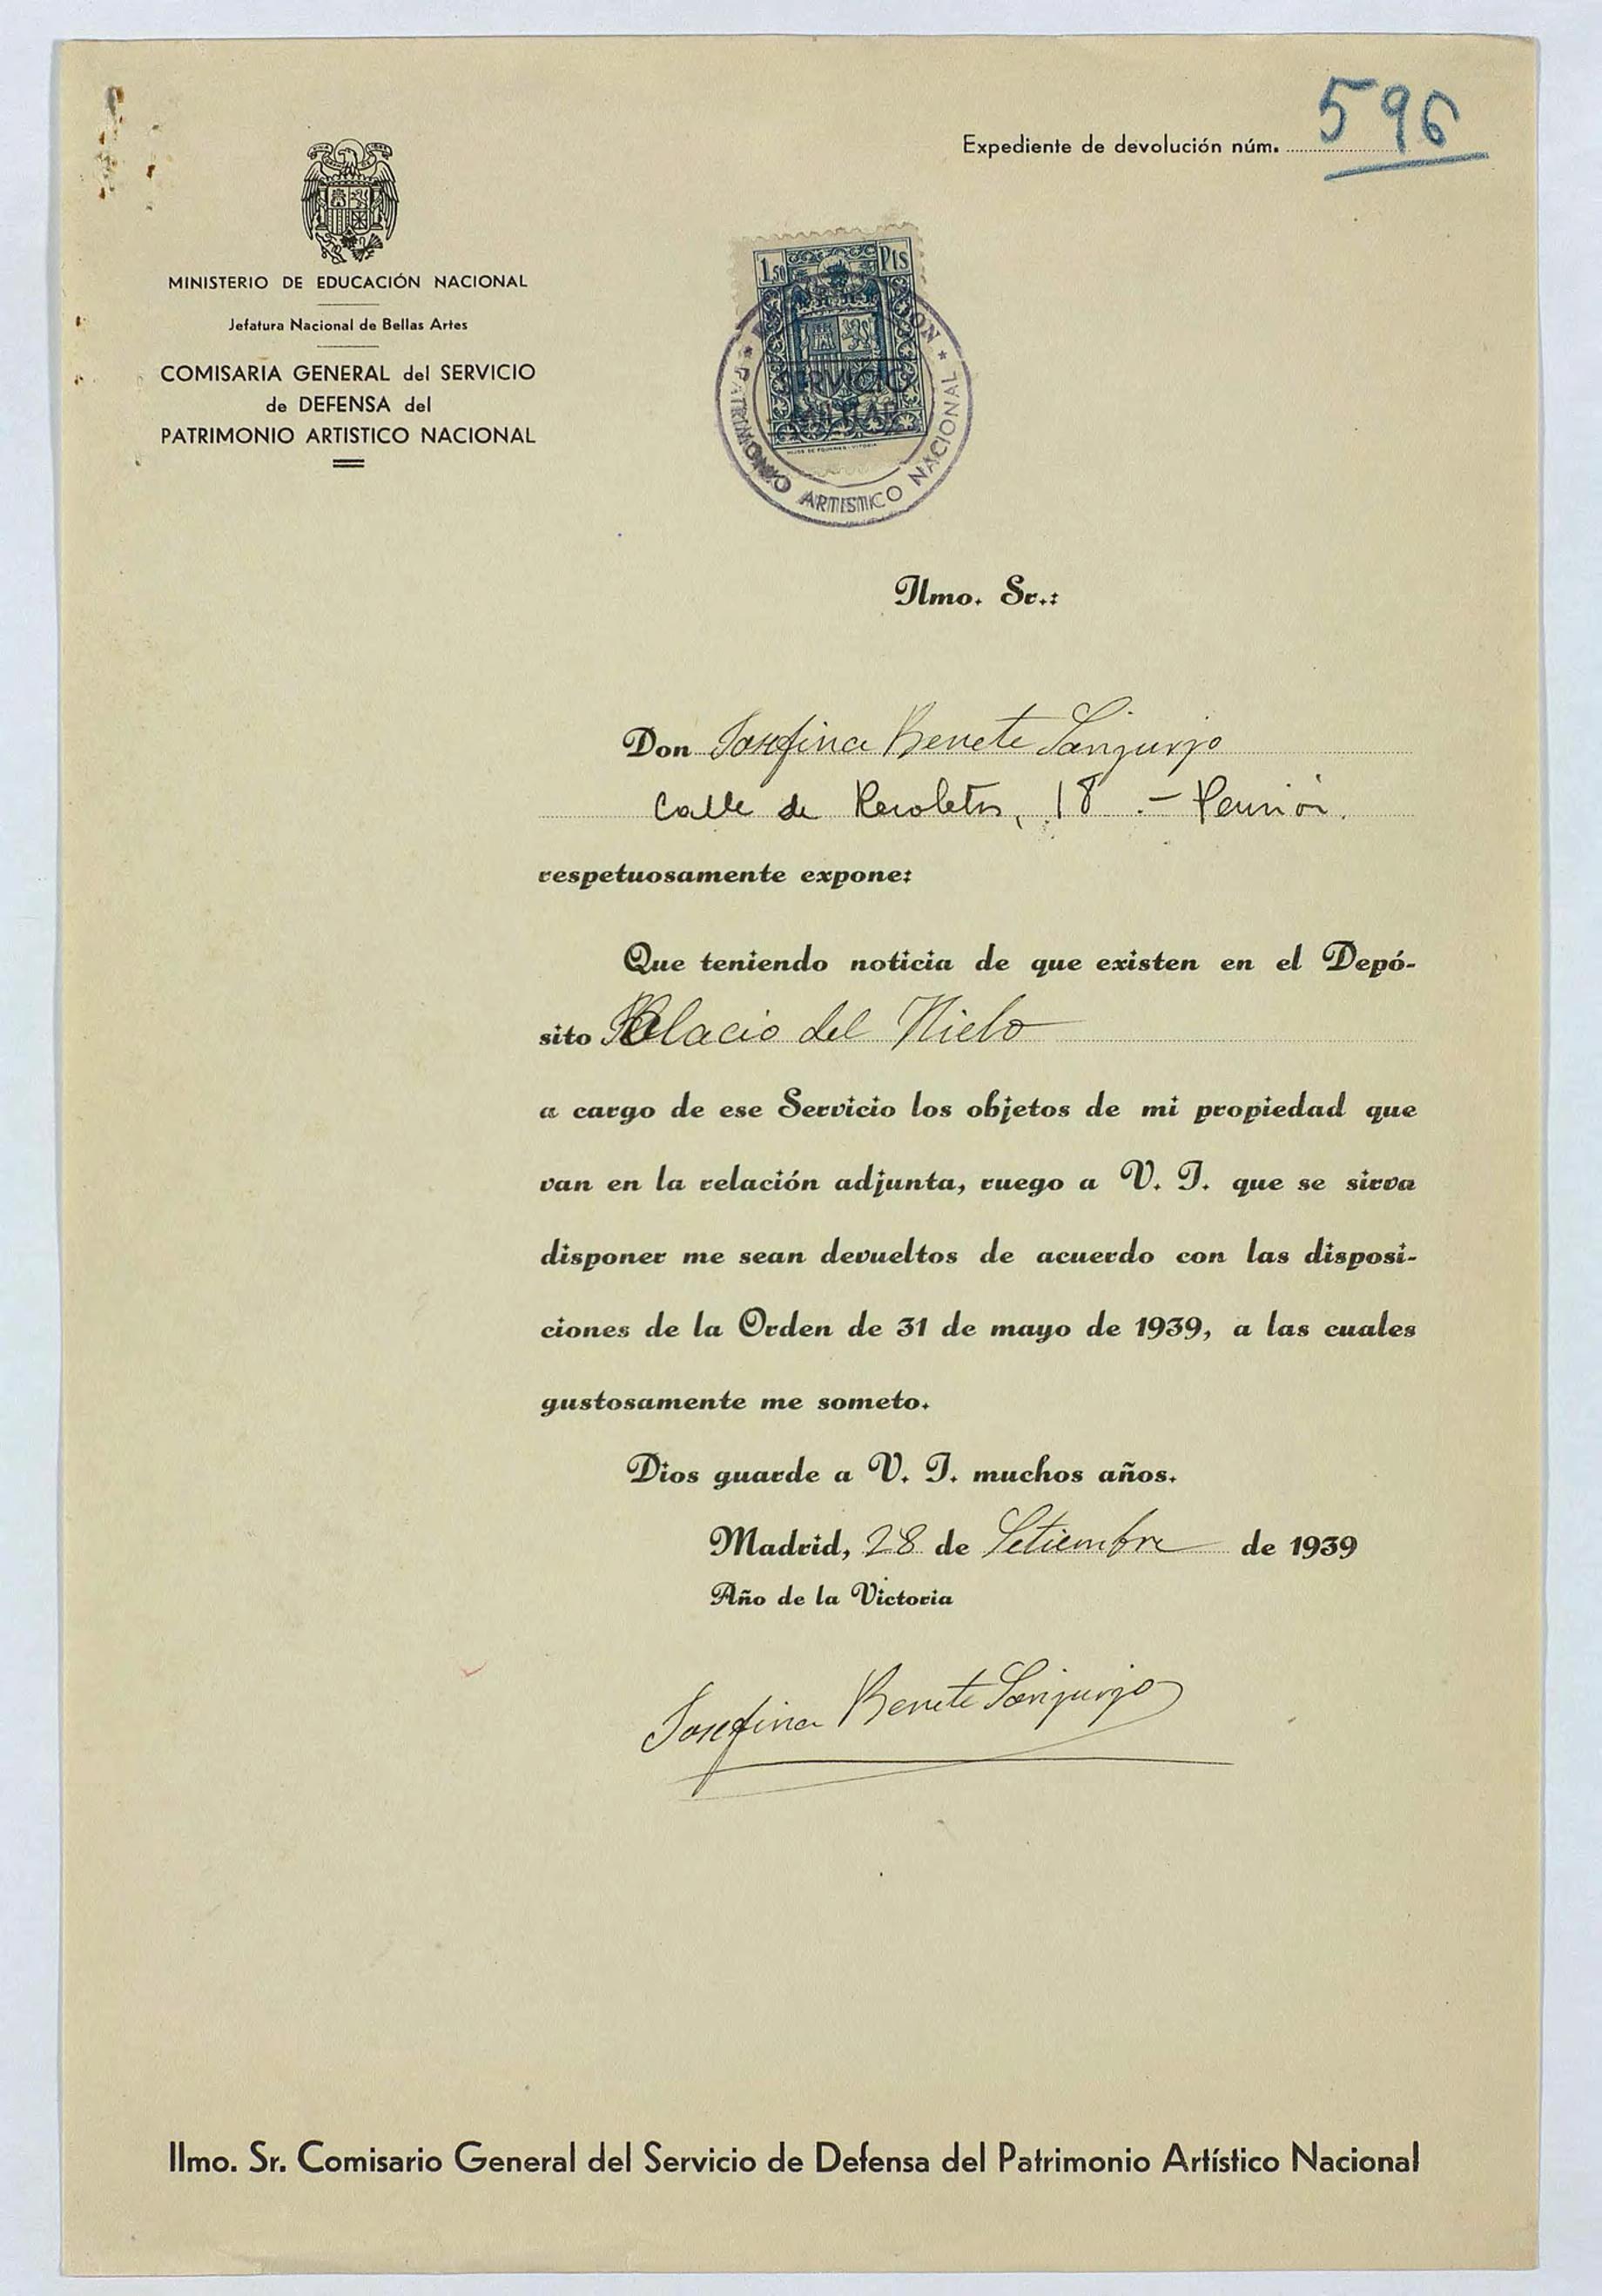 Expediente de devolución núm. 596
MINISTERIO DE EDUCACIÓN NACIONAL
Jefatura Nacional de Bellas Artes
COMISARIA GENERAL del SERVICIO
de DEFENSA del
PATRIMONIO ARTISTICO NACIONAL
1,50 Pts
SERVICIO
MILITAR
PATRIMONIO ARTISTICO NACIONAL
Ilmo. Sr.:
Don Josefina Benete Sanjurjo
Calle de Recoletos, 18 .- Pensión.
respetuosamente expone:
Que teniendo noticia de que existen en el Depó-
sito Palacio del Hielo
a cargo de ese Servicio los objetos de mi propiedad que
van en la relación adjunta, ruego a V. I. que se sirva
disponer me sean devueltos de acuerdo con las disposi-
ciones de la Orden de 31 de mayo de 1939, a las cuales
gustosamente me someto.
Dios guarde a V. I. muchos años.
Madrid, 28 de Setiembre de 1939
Año de la Victoria
Josefina Benete Sanjurjo
Ilmo. Sr. Comisario General del Servicio de Defensa del Patrimonio Artístico Nacional